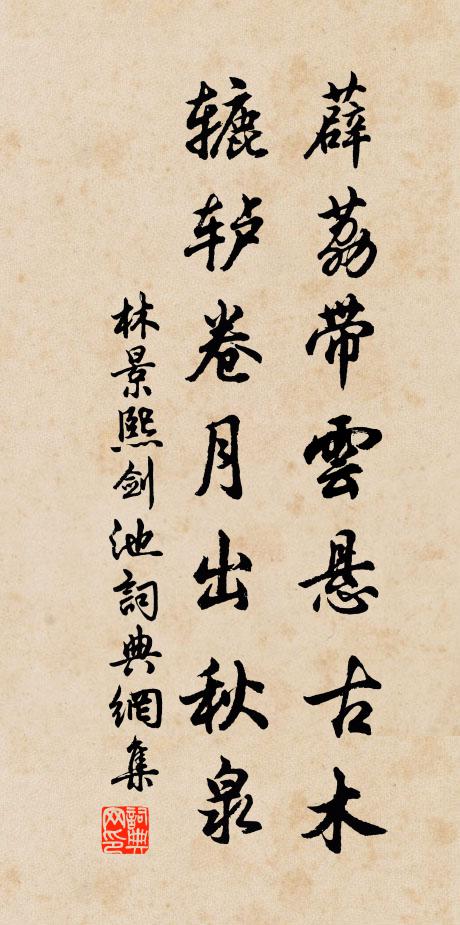 薜荔带雲悬古木
辘轳卷月出秋泉
林景熙剑池詞典網集
詞典网印